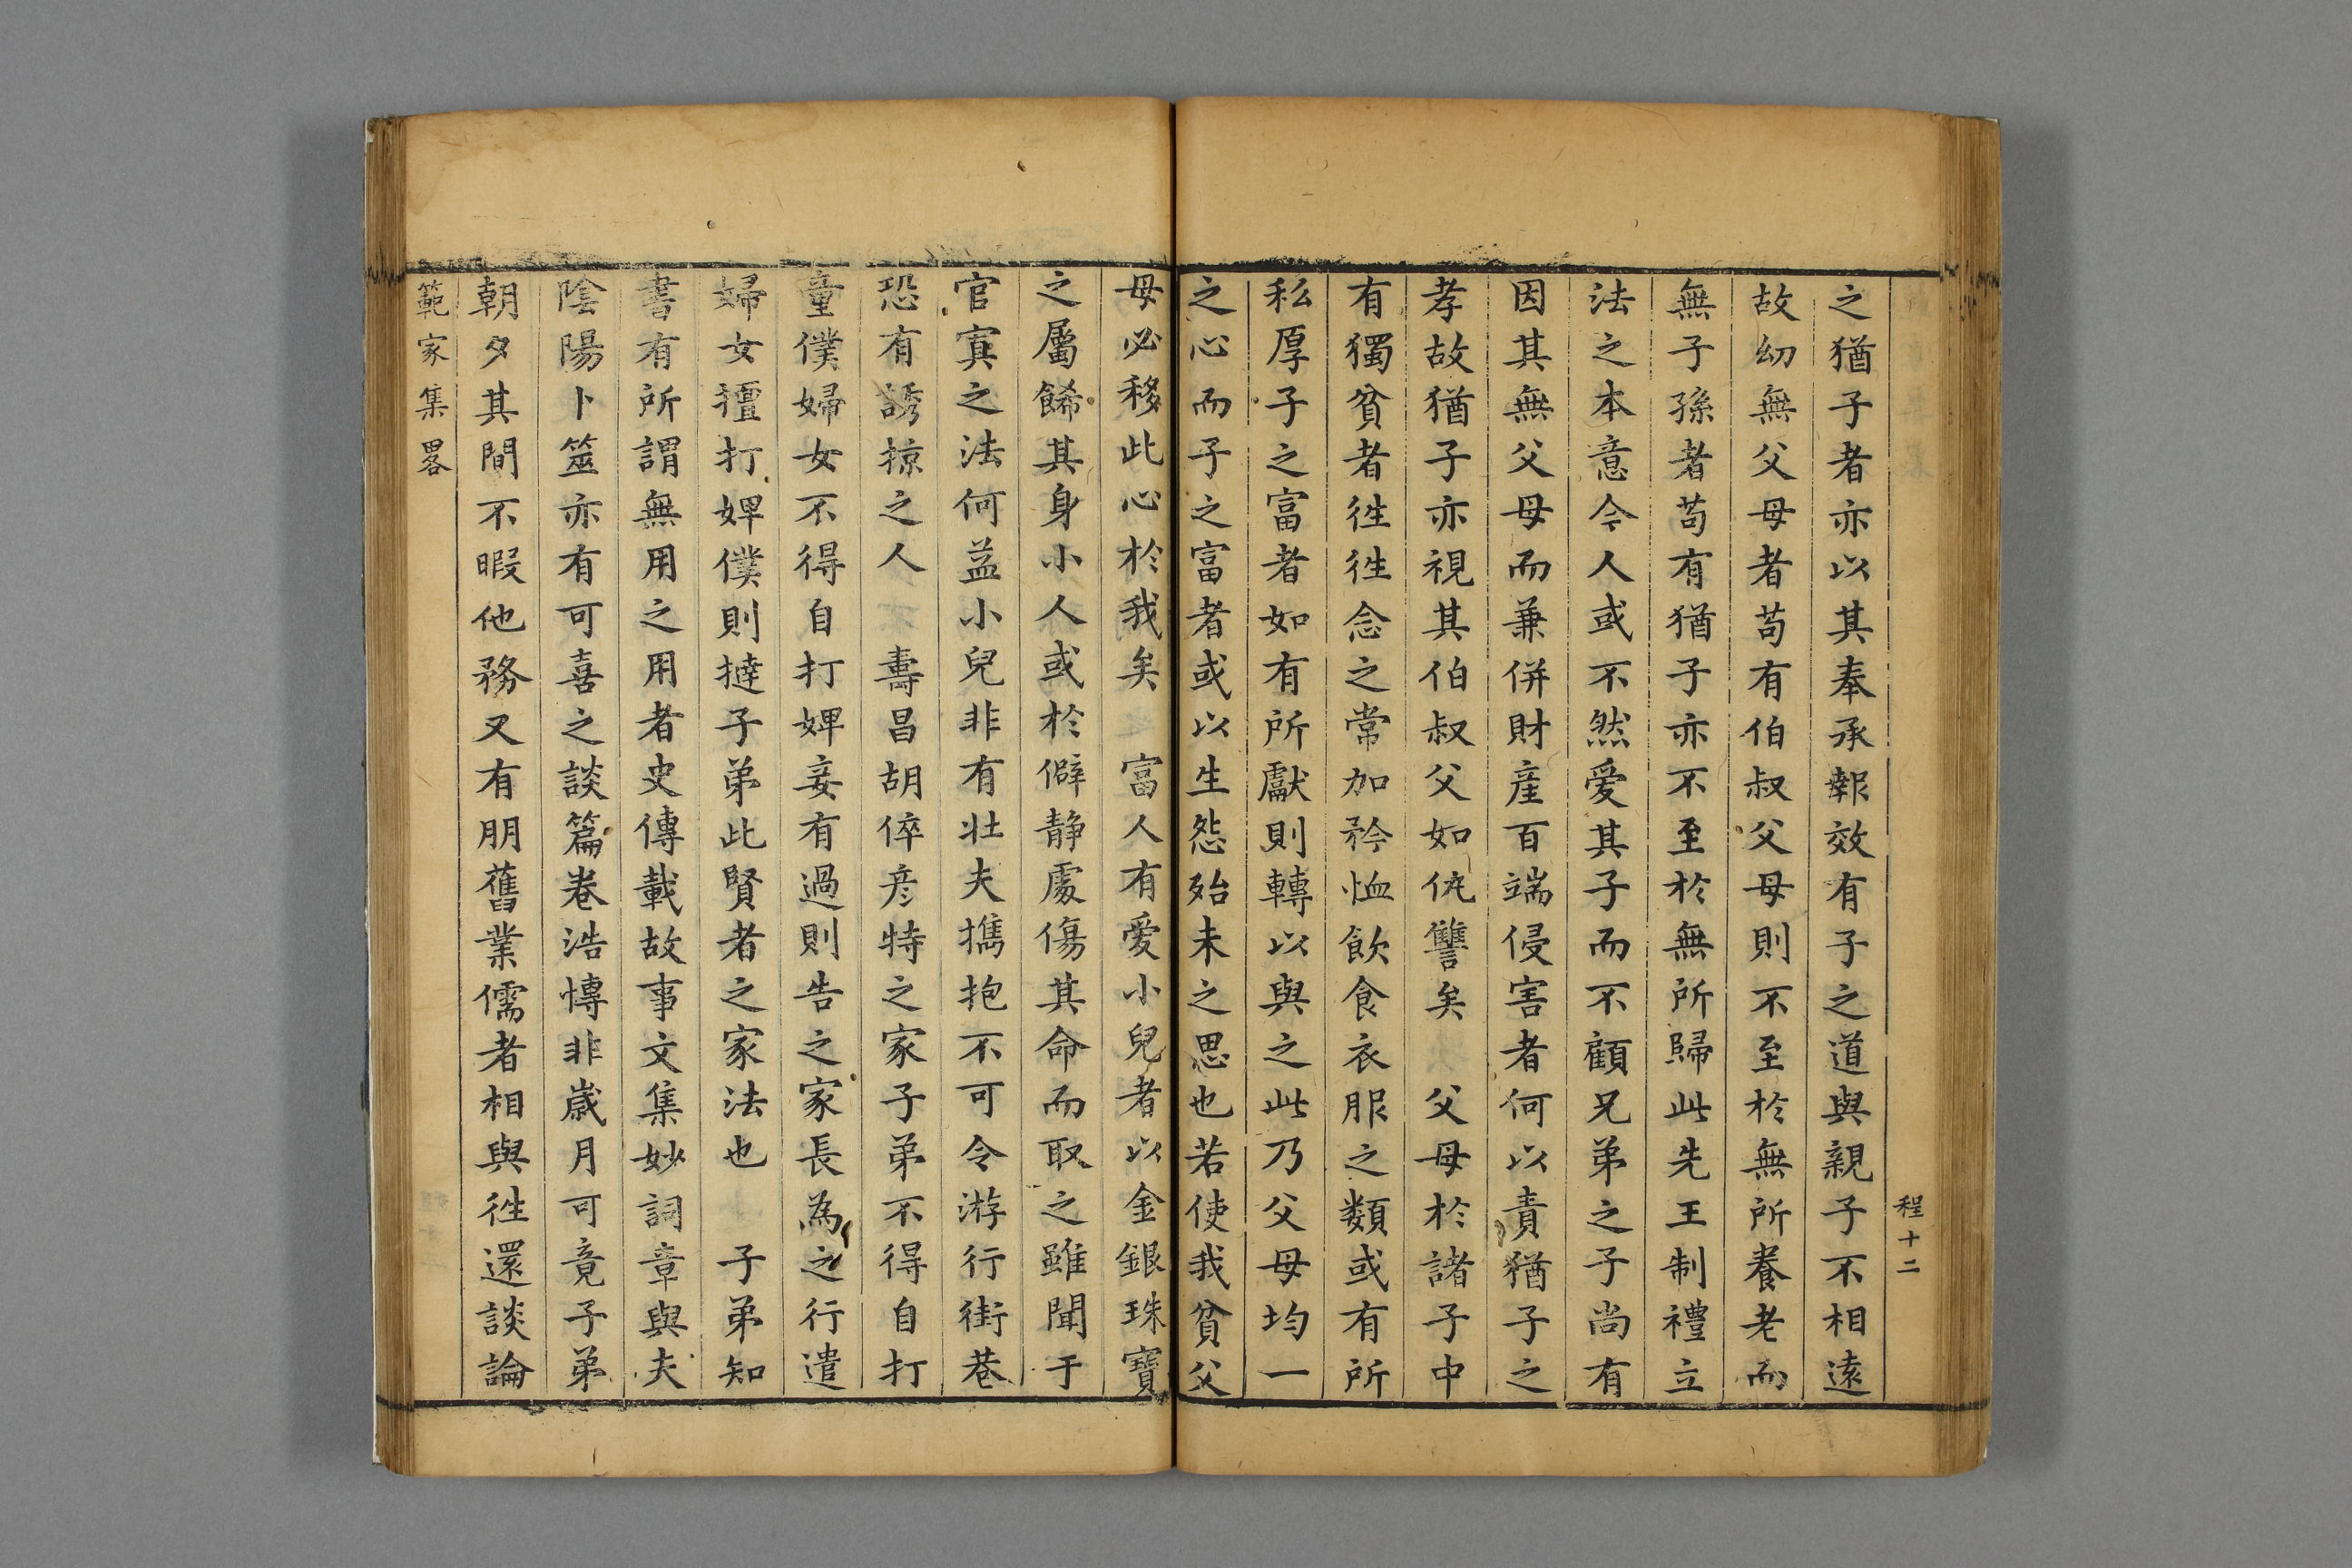 程十二
之猶子者亦以其奉承報效有子之道與親子不相遠
故幼無父母者苟有伯叔父母則不至於無所養老而
無子孫者苟有猶子亦不至於無所歸此先王制禮立
法之本意今人或不然愛其子而不顧兄弟之子尚有
因其無父母而兼併財産百端侵害者何以責猶子之
孝故猶子亦視其伯叔父如仇讐矣　父母於諸子中
有獨貧者徃徃念之常加矜恤飲食衣服之類或有所
私厚子之富者如有所獻則轉以與之此乃父母均一
之心而子之富者或以生怨殆未之思也若使我貧父
母必移此心於我矣　富人有愛小兒者以金銀珠寶
之屬餙其身小人或於僻静處傷其命而取之雖聞于
官寘之法何益小兒非有壮夫攜抱不可令游行街巷
恐有誘掠之人　夀昌胡倅彦特之家子弟不得自打
童僕婦女不得自打婢妾有過則告之家長為之行遣
婦女擅打婢僕則撻子弟此賢者之家法也　子弟知
書有所謂無用之用者史傳載故事文集妙詞章與夫
陰陽卜筮亦有可喜之談篇卷浩愽非歲月可竟子弟
朝夕其間不暇他務又有朋舊業儒者相與徃還談論
範家集畧